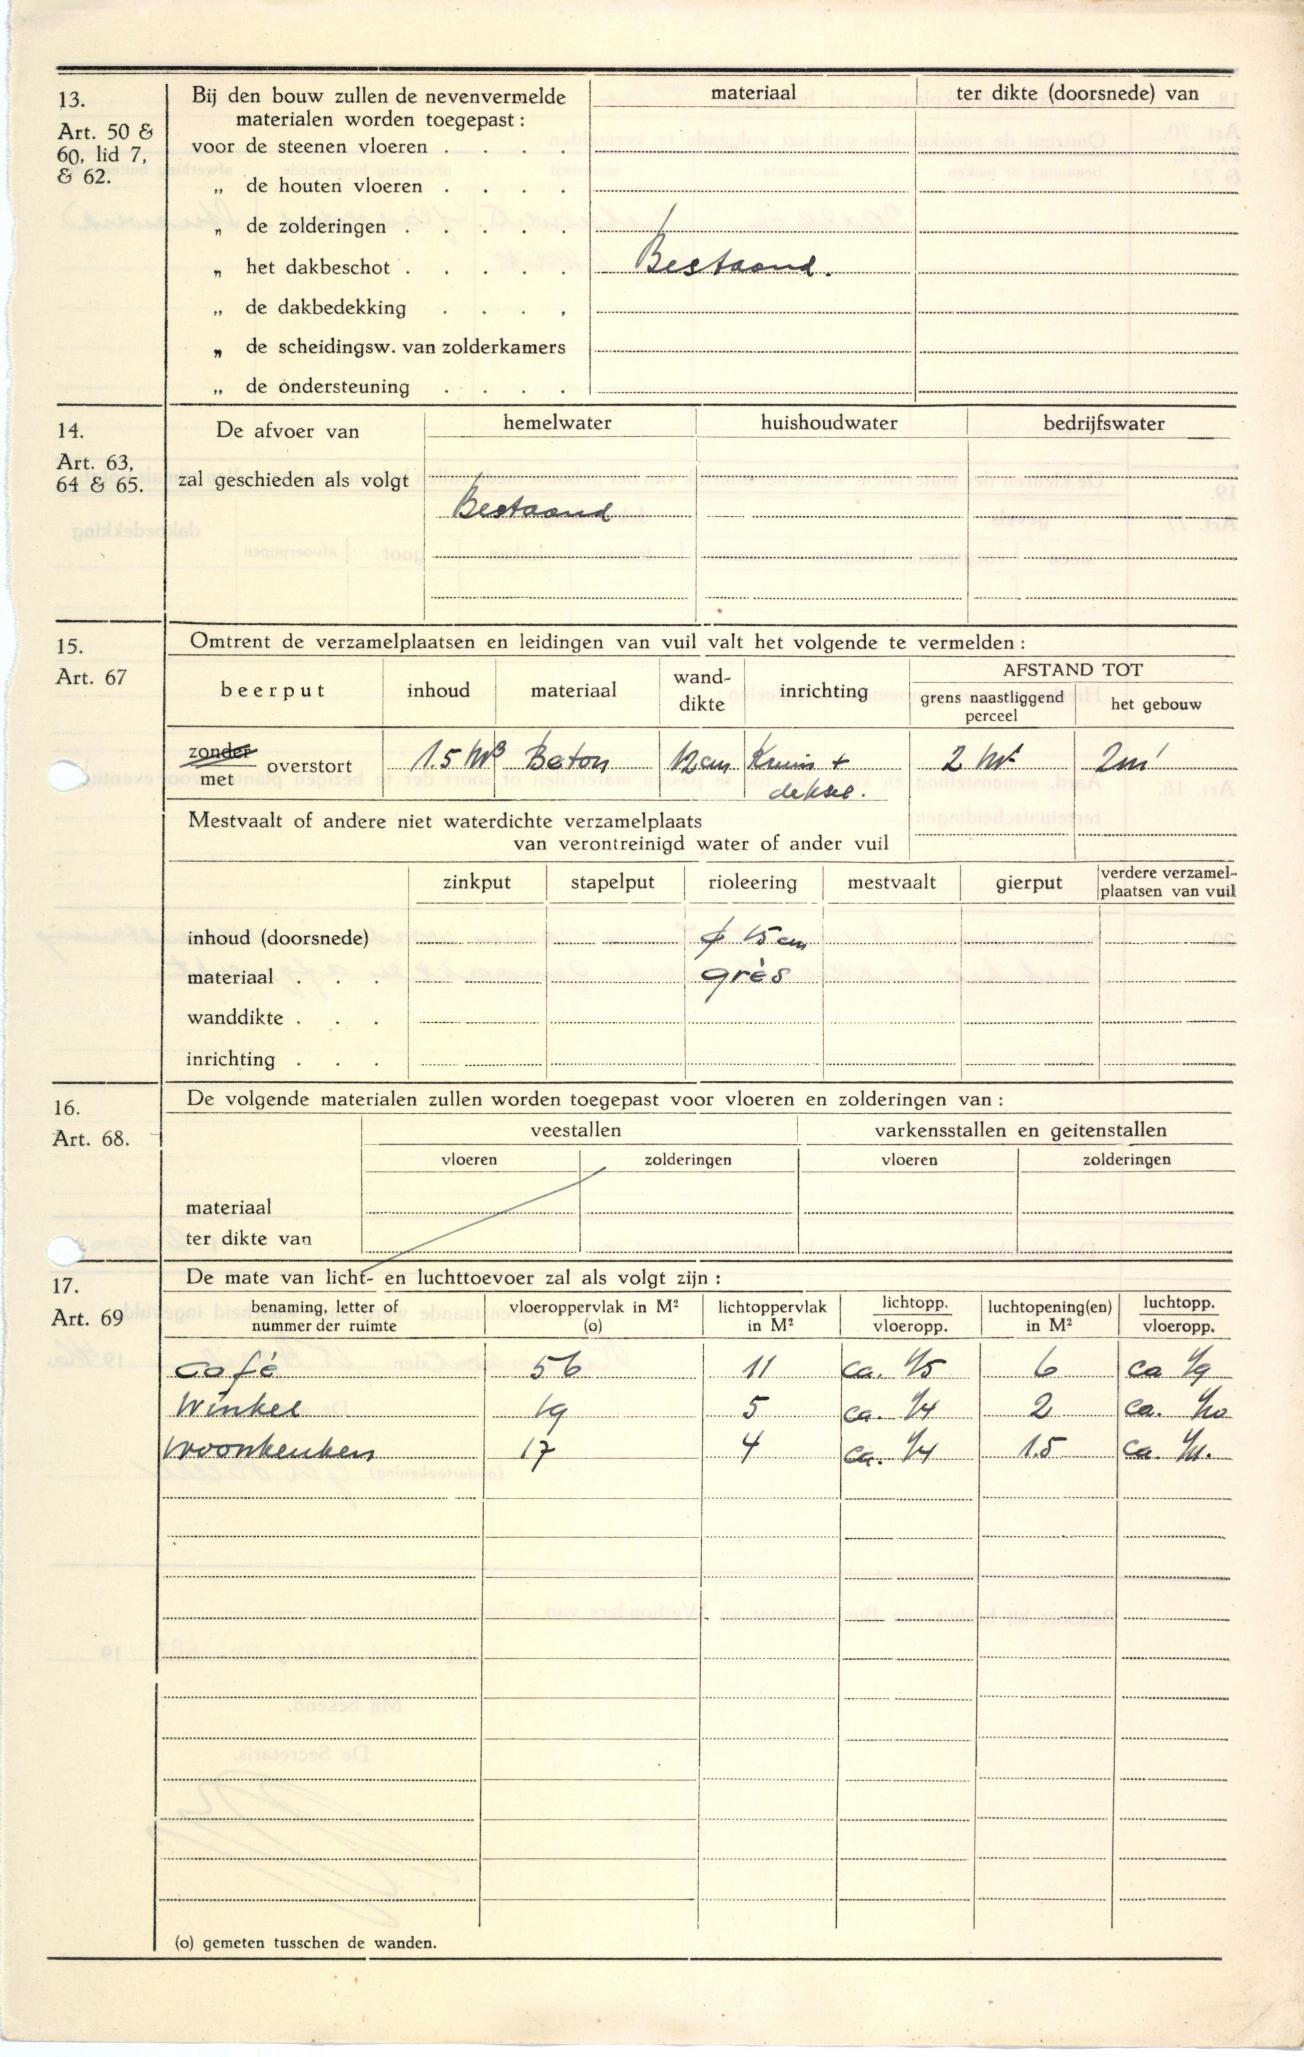 13.
Art. 50 &
60, lid 7,
& 62.
Bij den bouw zullen de nevenvermelde
materialen worden toegepast :
materiaal
ter dikte (doorsnede) van
voor de steenen vloeren . . . .
„ de houten vloeren . . . .
„ de zolderingen . . . . .
„ het dakbeschot . . . . . Bestaand.
„ de dakbedekking . . . .
„ de scheidingsw. van zolderkamers
„ de ondersteuning . . . .
14.
Art. 63,
64 & 65.
De afvoer van
zal geschieden als volgt
hemelwater
huishoudwater
bedrijfswater
Bestaand
15.
Art. 67
Omtrent de verzamelplaatsen en leidingen van vuil valt het volgende te vermelden :
beerput
inhoud
materiaal
wand-
dikte
inrichting
AFSTAND TOT
grens naastliggend
perceel
het gebouw
zonder
met overstort
1.5 M³
Beton
12 cm
Kruin +
deksel.
2 M¹
2m¹
Mestvaalt of andere niet waterdichte verzamelplaats
van verontreinigd water of ander vuil
zinkput stapelput rioleering mestvaalt gierput verdere verzamel-
plaatsen van vuil
inhoud (doorsnede) ϕ 15 cm
materiaal . . . grès
wanddikte . . .
inrichting . . .
16.
Art. 68.
De volgende materialen zullen worden toegepast voor vloeren en zolderingen van :
veestallen varkensstallen en geitenstallen
vloeren zolderingen vloeren zolderingen
materiaal
ter dikte van
17.
Art. 69
De mate van licht- en luchttoevoer zal als volgt zijn :
benaming, letter of
nummer der ruimte
vloeroppervlak in M²
(o)
lichtoppervlak
in M²
lichtopp.
vloeropp.
luchtopening(en)
in M²
luchtopp.
vloeropp.
café 56 11 ca. 1/5 6 ca 1/9
Winkel 19 5 ca. 1/4 2 ca. 1/10
Woonkeuken 17 4 ca. 1/4 1.5 ca. 1/11.
(o) gemeten tusschen de wanden.